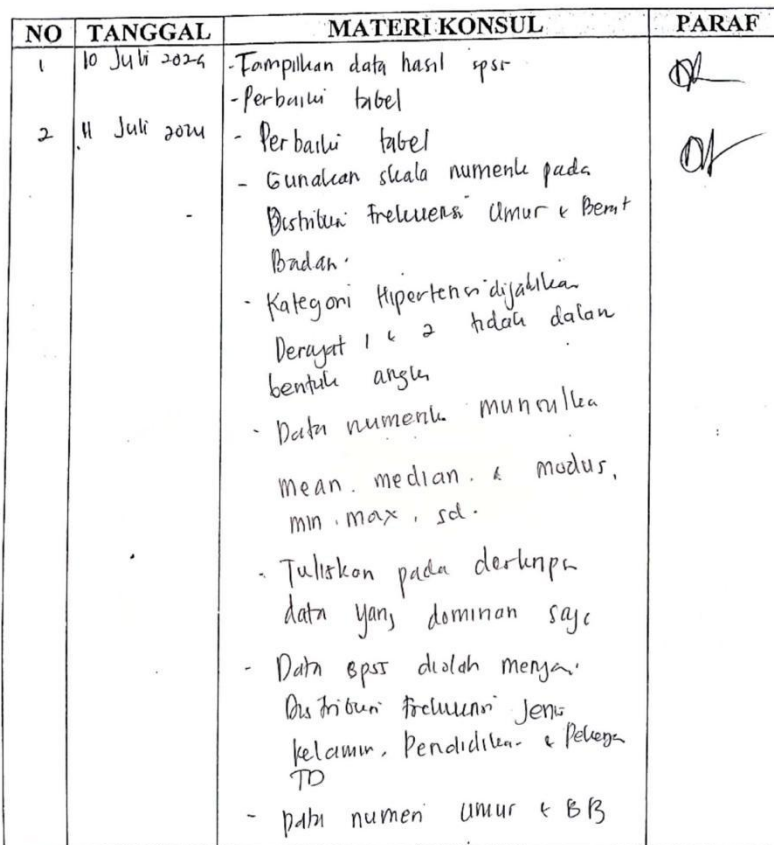 NO TANGGAL MATERI KONSUL PARAF
1 10 Juli 2024 - Tampilkan data hasil spss
- Perbaiki tabel
2 11 Juli 2024 - Perbaiki tabel
- Gunakan skala numerik pada
Distribusi Frekuensi Umur & Berat
Badan.
- Kategori Hipertensi dijadikan
Derajat 1 & 2 tidak dalam
bentuk angka
- Data numerik munculka
mean. median. & modus,
min. max, sd.
- Tuliskan pada deskripsi
data yang dominan saja
- Data spss diolah menjadi
Distribusi Frekuensi Jenis
kelamin, Pendidikan & Pekerja
TD
- Data numeri Umur & BB